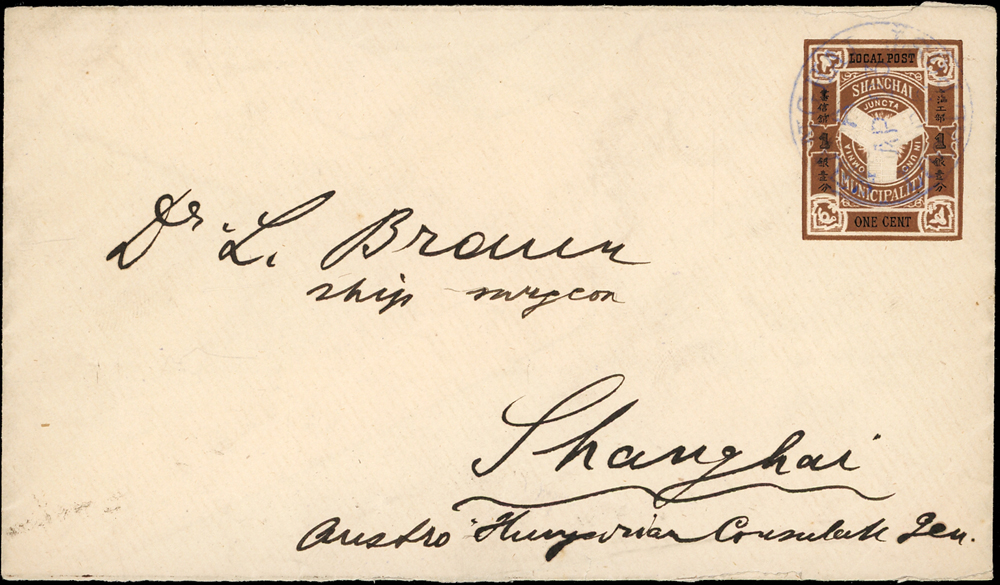 LOCAL POST
SHANGHAI
JUNCTA IN UNO OMNIA
MUNICIPALITY
ONE CENT
書信館
上海工部
銀壹分
銀壹分
Dr. L. Braun
ship surgeon
Shanghai
Austro Hungarian Consulate Gen.